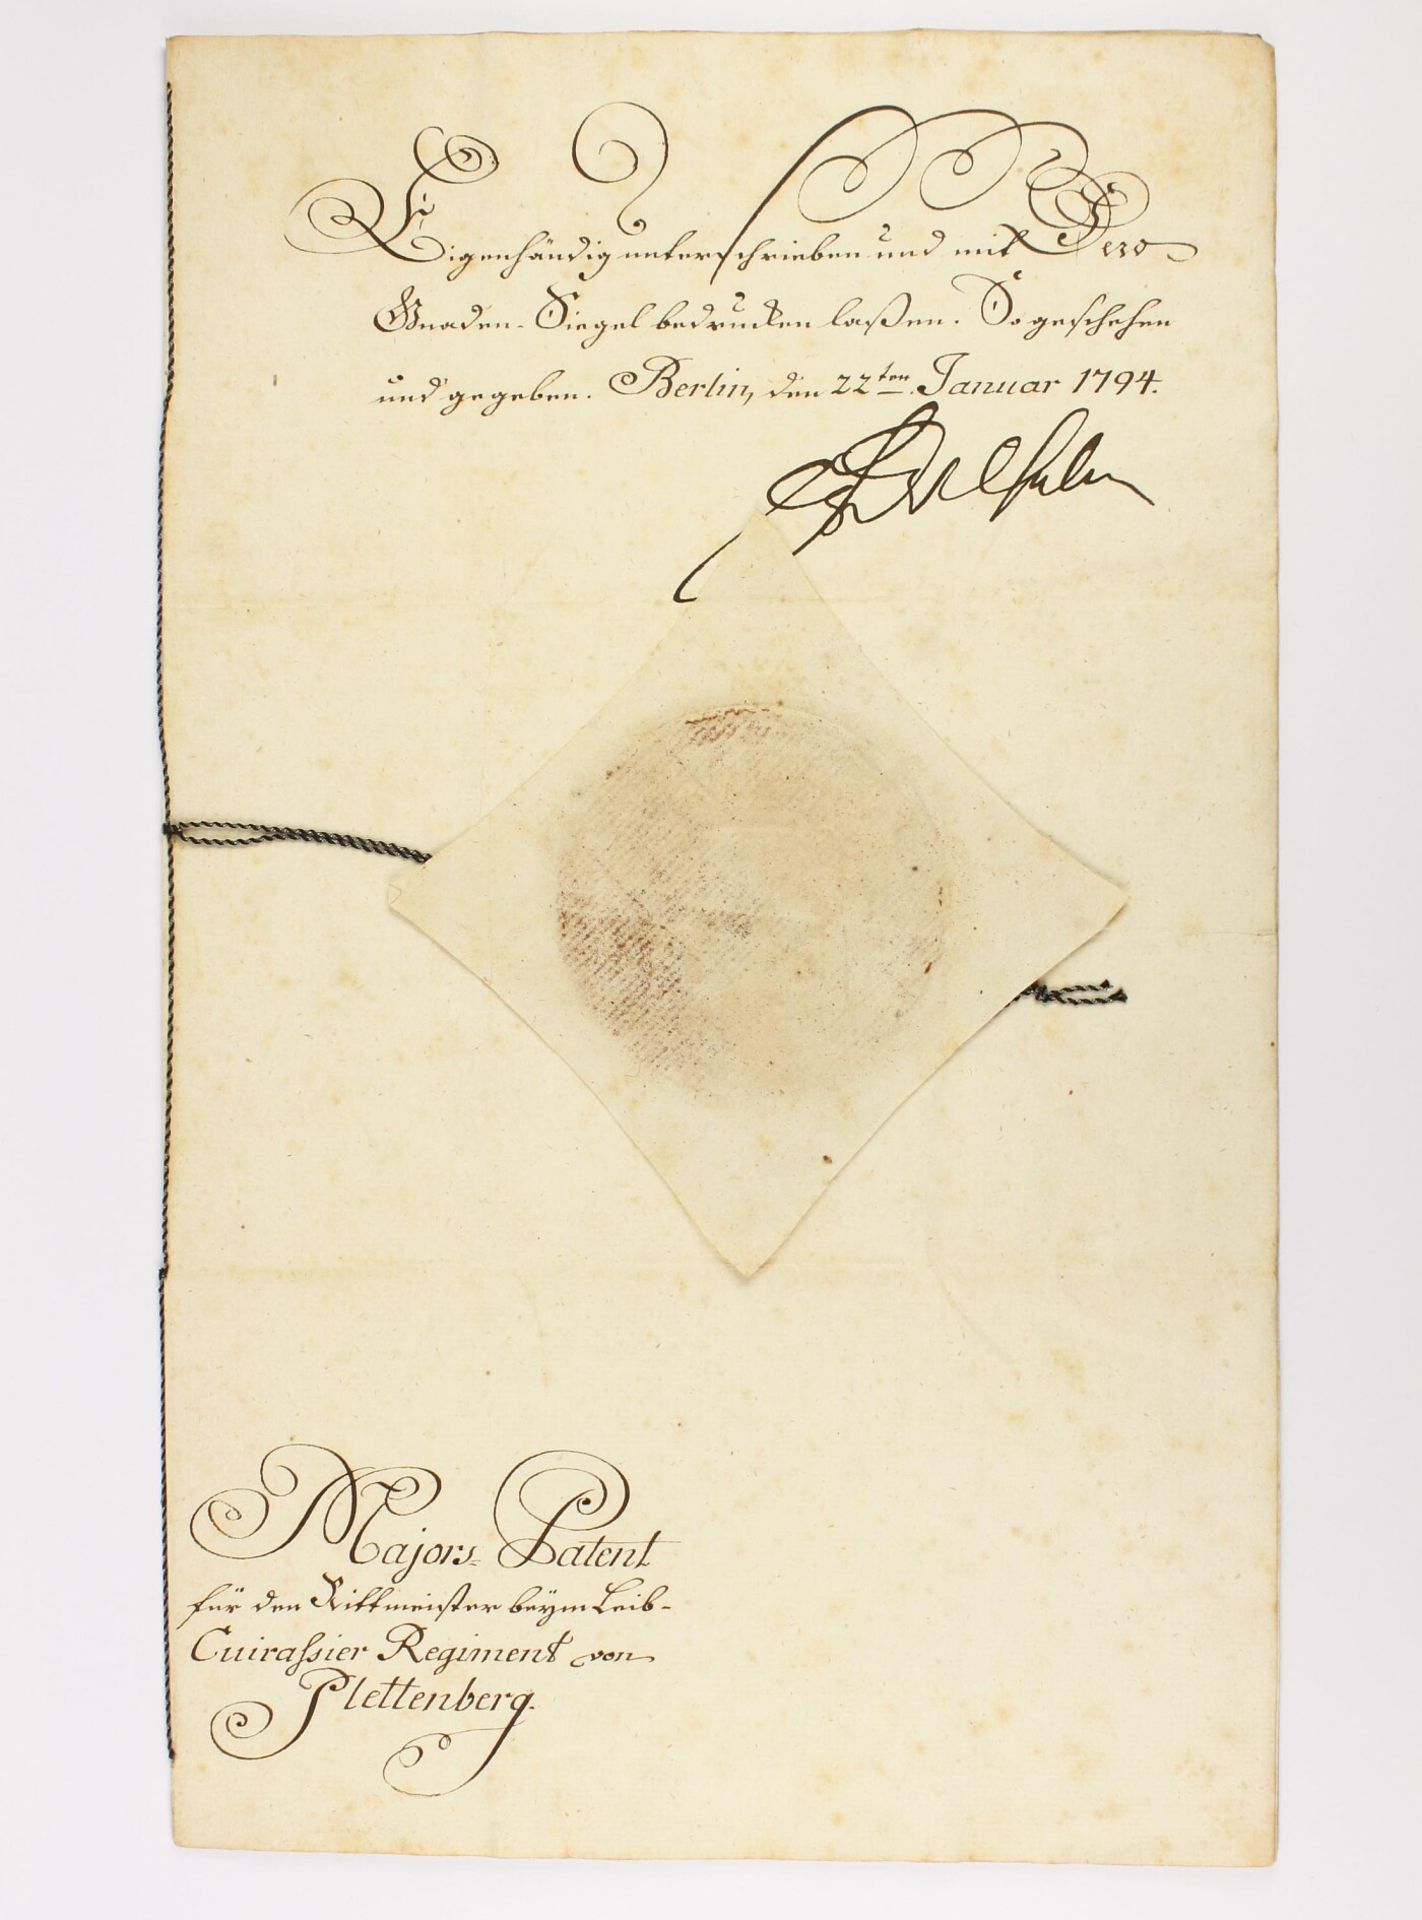 Eigenhändig unterschrieben und mit Dero
Gnaden-Siegel bedrucken laßen. So geschehen
und gegeben. Berlin, den 22ten. Januar 1794.
FrWilhelm
Majors-Patent
für den Rittmeister beym Leib-
Cuirassier Regiment von
Plettenberg.